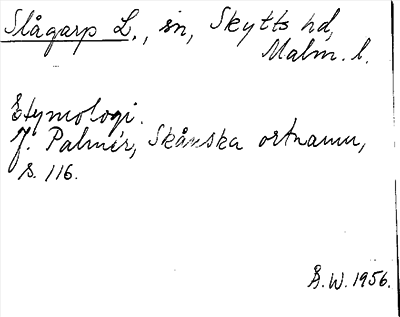 Slågarp L., sn, Skytts hd,
Malm. l.
Etymologi.
J. Palmér, Skånska ortnamn,
s. 116.
Å.W. 1956.